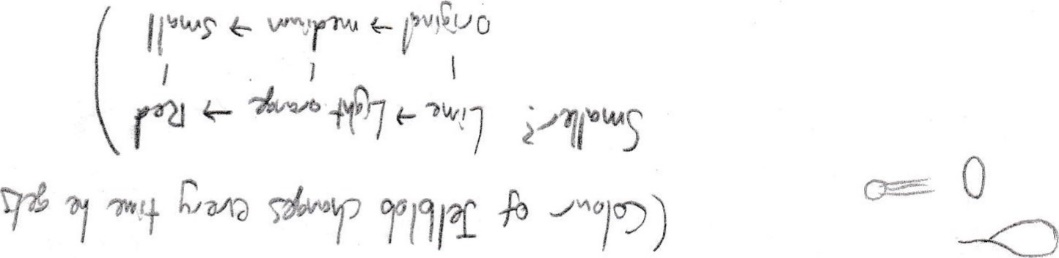 (Colour of Jelblob changes every time he gets
smaller: Lime → Light orange → Red
Original → medium → small)